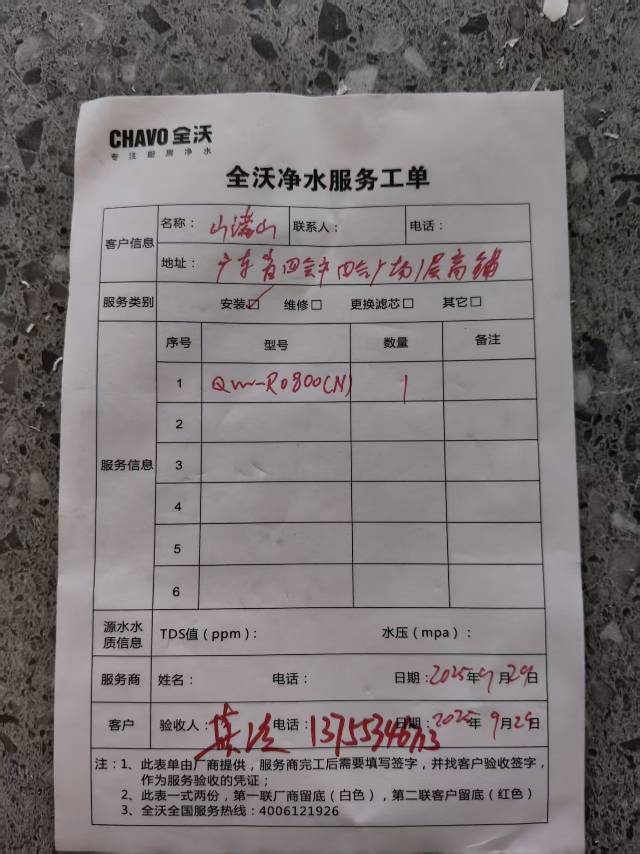 CHAVO 全沃
专注厨房净水
全沃净水服务工单
客户信息
名称： 山潽山 联系人： 电话：
地址： 广东省四会市四会广场1层商铺
服务类别 安装☑ 维修□ 更换滤芯□ 其它□
服务信息
序号 型号 数量 备注
1 QW-RO800(N) 1
2
3
4
5
6
源水水质信息 TDS值（ppm）： 水压（mpa）：
服务商 姓名： 电话： 日期：2025年9月29日
客户 验收人： 电话： 日期：2025年9月29日
注：1、此表单由厂商提供，服务商完工后需要填写签字，并找客户验收签字，
作为服务验收的凭证；
2、此表一式两份，第一联厂商留底（白色），第二联客户留底（红色）
3、全沃全国服务热线：4006121926